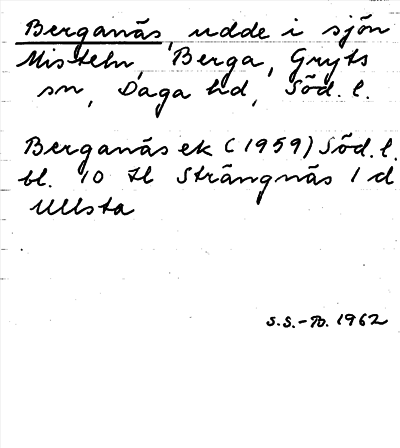 Berganäs, udde i sjön
Misteln, Berga, Gryts
sn, Daga hd, Söd. l.
Berganäs ek (1959) Söd. l.
bl. 10 Strängnäs 1 d
Ullsta
S.S.-B. 1962